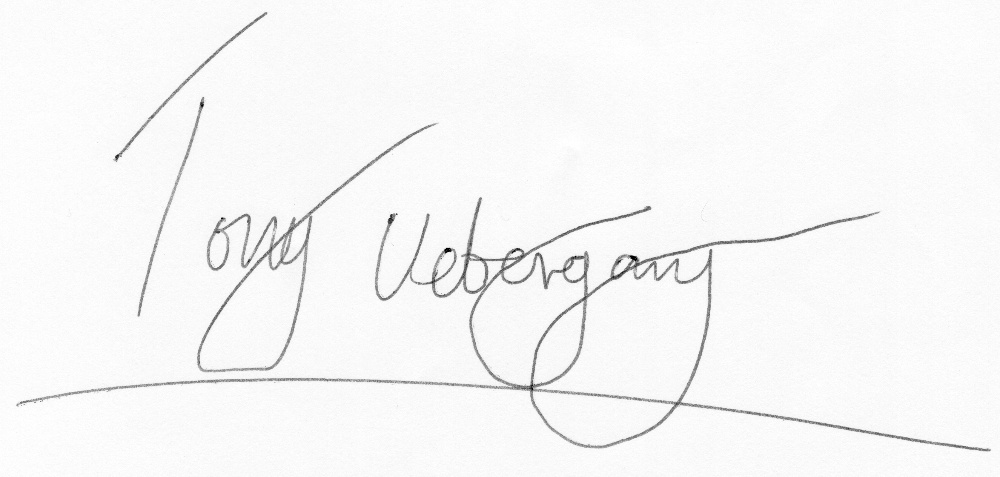 Tony Uebergang